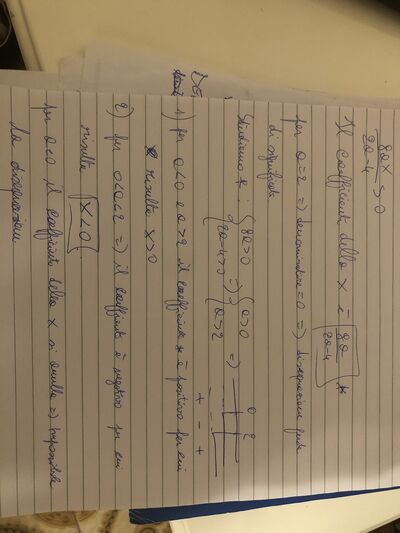 8ax/2a-4 > 0
Il coefficiente della x è 8a/2a-4 *
per a=2 => denominatore=0 => disequazione perde
di significato
Studiamo * : { 8a>0 2a-4>0 => { a>0 a>2 => 0 2
+ - +
1) per a<0 e a>2 il coefficiente * è positivo per cui
risulta x>0
2) per 0<a<2 => il coefficiente è negativo per cui
risulta x<0
per a=0 il coefficiente della x si annulla => impossibile
la disequazione.